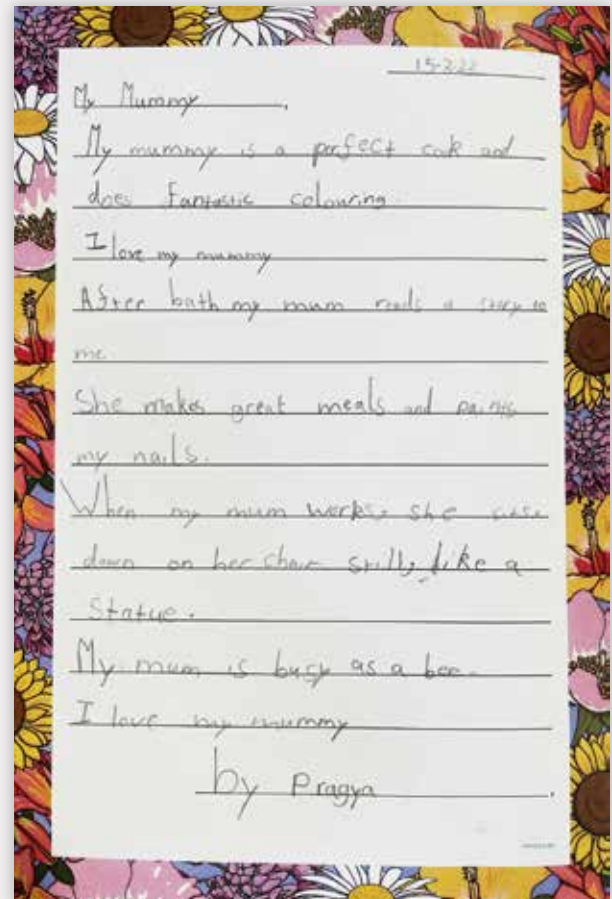 15-3-22
My Mummy
My mummy is a perfect cook and
does fantastic colouring
I love my mummy
After bath my mum reads a story to
me.
She makes great meals and paints
my nails.
When my mum works, she
down on her chair still, like a
Statue.
My mum is busy as a bee.
I love my mummy
by Pragya